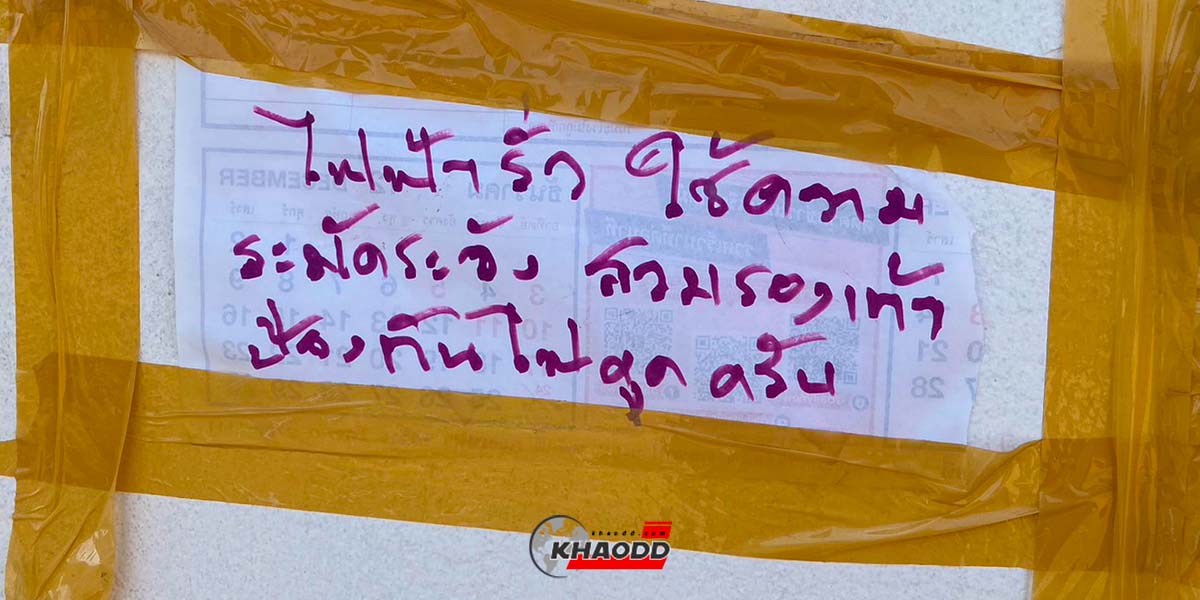 ไฟฟ้ารั่ว ใช้ความ
ระมัดระวัง สวมรองเท้า
ป้องกันไฟดูด ครับ
khaodd.com
KHAODD